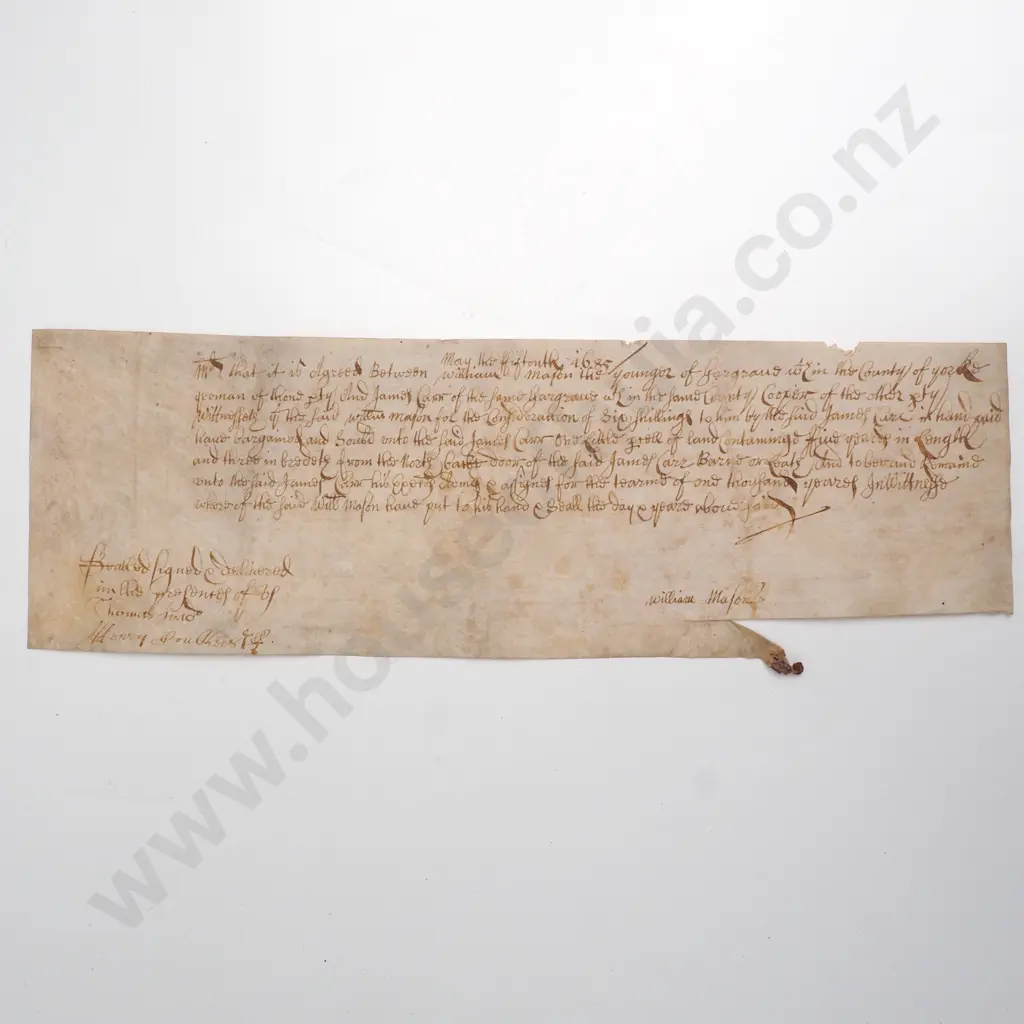 May the 1685
Md That it is Agreed Between William Mason the younger of Gargrave in the County of yorke
yeoman of thone pty And James Carr of the same Gargrave in the same County Cooper of the other pty
Wittnesseth yt the said Willm Mason for the Consideracion of Six shillings to him by the said James Carr in hand paid
have bargained and Sould unto the said James Carr One little pcell of land Containinge five yeards in Length
and three in bredeth from the North doore of the said James Carr Barne or and to bee and Remaine
unto the said James Carr his & assignes for the tearme of one thousand yeares In Wittnesse
where of the said Willm Mason have put to his hand & Seall the day & yeare above said
Sealled signed & delivered
in the presentes of us
Thomas
Henry
William Mason
www.house.co.nz